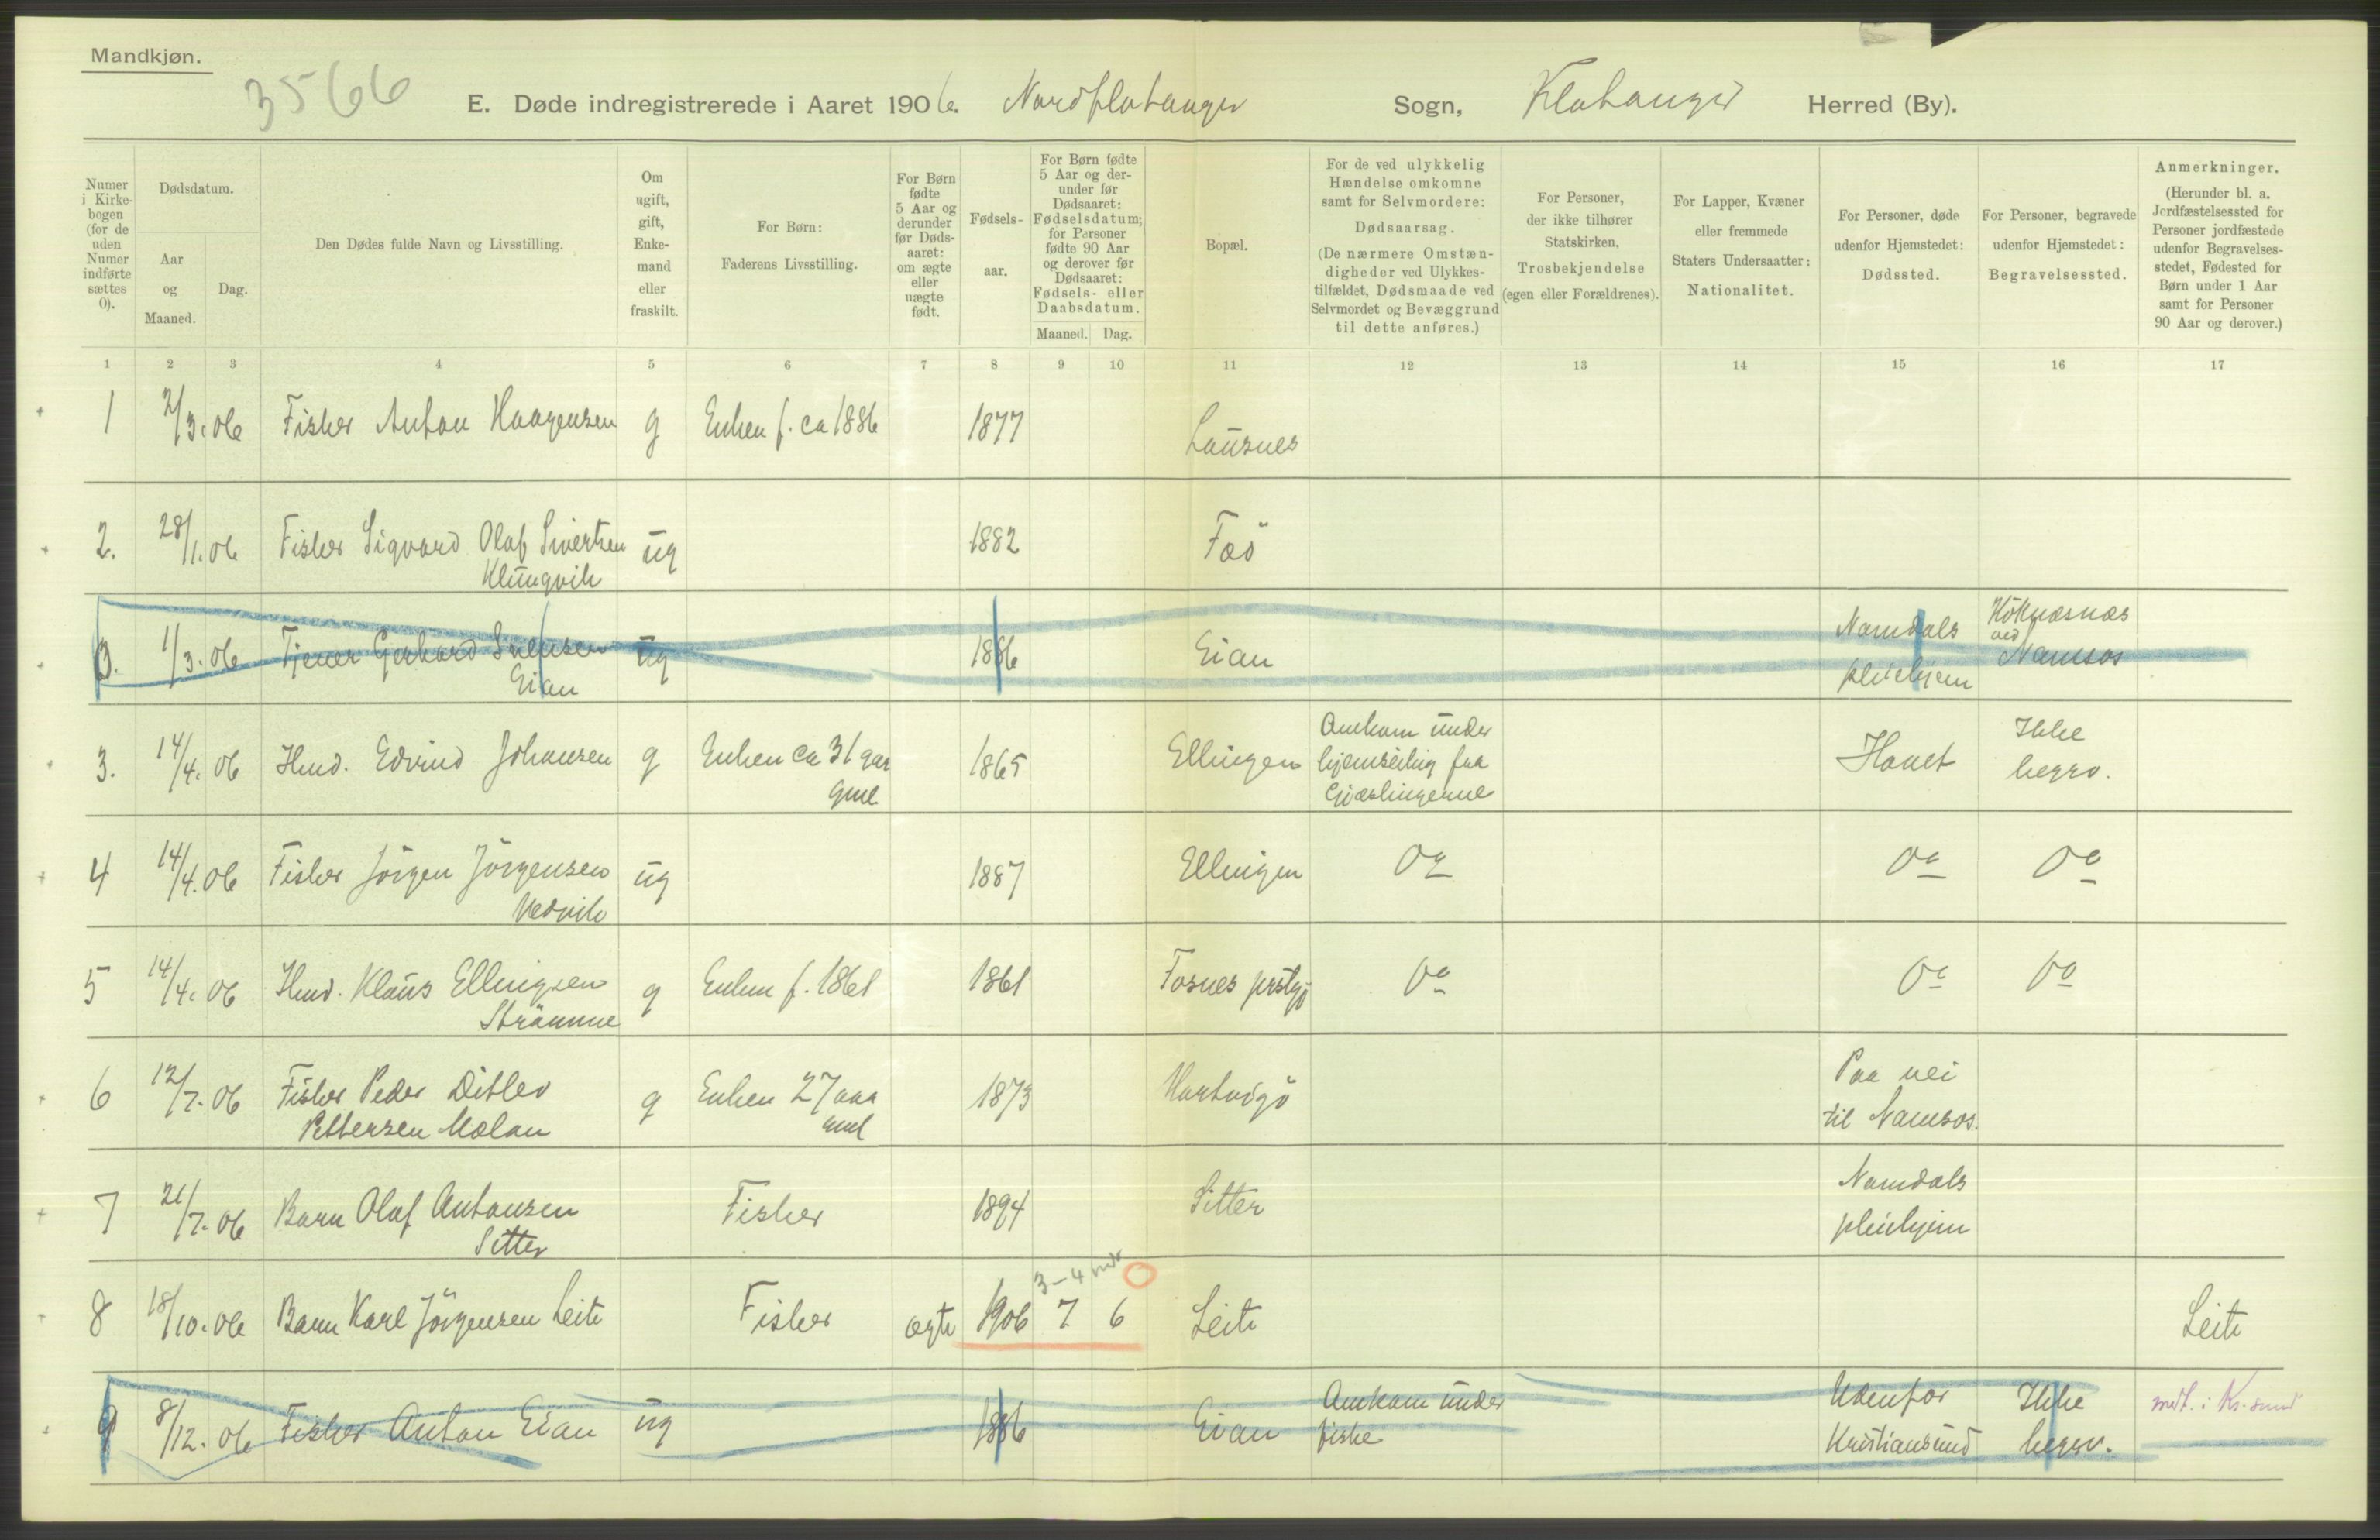 Mandkjøn.
3566
E. Døde indregistrerede i Aaret 1906. Nordflatanger Sogn, Flatanger Herred (By).
Numer i Kirke-bogen (for de uden Numer indførte sættes 0).
Dødsdatum.
Aar og Maaned.
Dag.
Den Dødes fulde Navn og Livsstilling.
Om ugift, gift, Enke-mand eller fraskilt.
For Børn: Faderens Livsstilling.
For Børn fødte 5 Aar og derunder før Døds-aaret: om ægte eller uægte født.
Fødsels-aar.
For Børn fødte 5 Aar og der-under før Dødsaaret: Fødselsdatum; for Personer fødte 90 Aar og derover før Dødsaaret: Fødsels- eller Daabsdatum.
Maaned. Dag.
Bopæl.
For de ved ulykkelig Hændelse omkomne samt for Selvmordere: Dødsaarsag. (De nærmere Omstæn-digheder ved Ulykkes-tilfældet, Dødsmaade ved Selvmordet og Bevæggrund til dette anføres.)
For Personer, der ikke tilhører Statskirken, Trosbekjendelse (egen eller Forældrenes).
For Lapper, Kvæner eller fremmede Staters Undersaatter: Nationalitet.
For Personer, døde udenfor Hjemstedet: Dødssted.
For Personer, begravede udenfor Hjemstedet: Begravelsessted.
Anmerkninger. (Herunder bl. a. Jordfæstelsessted for Personer jordfæstede udenfor Begravelses-stedet, Fødested for Børn under 1 Aar samt for Personer 90 Aar og derover.)
1 2 3 4 5 6 7 8 9 10 11 12 13 14 15 16 17
1 2/3.06 Fisker Anton Haagensen g Enken f. ca 1886 1877 Lausnes
2. 28/1.06 Fisker Sigvard Olaf Sivertsen ug 1882 Faö
Klungvik
3. 1/3.06 Tjener Gerhard ug 1886 Eian Namdals Höknæsnæs
Eian pleiehjem ved Namsos
3. 14/4.06 Hmd. Edvind Johansen g Enken ca 31 aar 1865 Ellingen Omkom under Havet Ikke
gml hjemseiling fra begrv.
Gjæslingerne
4 14/4.06 Fisker Jörgen Jörgensen ug 1887 Ellingen Do Do Do
Vedvik
5 14/4.06 Hmd. Klaus Ellingsen g Enken f. 1861 1861 Fosnes prstgj Do Do Do
Strömme
6 12/7.06 Fisker Peder Ditlev g Enken 27 aar 1873 Paa vei
Pettersen Mælan gml til Namsos.
7 21/7.06 Barn Olaf Antonsen Fisker 1894 Sitter Namdals
Sitter pleiehjem
3-4 mdr
8 18/10.06 Barn Karl Jörgensen Leite Fisker ægte 1906 7 6 Leite Leite
9 8/12.06 Fisker Anton Eian ug 1886 Eian Omkom under Udenfor Ikke medt. i Kr.sund
fiske Kristiansund begrv.